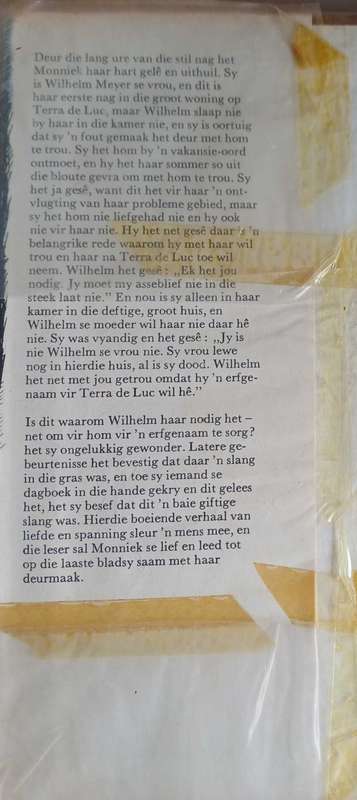 Deur die lang ure van die stil nag het
Monniek haar hart gelê en uithuil. Sy
is Wilhelm Meyer se vrou, en dit is
haar eerste nag in die groot woning op
Terra de Luc, maar Wilhelm slaap nie
by haar in die kamer nie, en sy is oortuig
dat sy 'n fout gemaak het deur met hom
te trou. Sy het hom by 'n vakansie-oord
ontmoet, en hy het haar sommer so uit
die bloute gevra om met hom te trou. Sy
het ja gesê, want dit het vir haar 'n ont-
vlugting van haar probleme gebied, maar
sy het hom nie liefgehad nie en hy ook
nie vir haar nie. Hy het net gesê daar is 'n
belangrike rede waarom hy met haar wil
trou en haar na Terra de Luc toe wil
neem. Wilhelm het gesê: „Ek het jou
nodig. Jy moet my asseblief nie in die
steek laat nie." En nou is sy alleen in haar
kamer in die deftige, groot huis, en
Wilhelm se moeder wil haar nie daar hê
nie. Sy was vyandig en het gesê: „Jy is
nie Wilhelm se vrou nie. Sy vrou lewe
nog in hierdie huis, al is sy dood. Wilhelm
het net met jou getrou omdat hy 'n erfge-
naam vir Terra de Luc wil hê."
Is dit waarom Wilhelm haar nodig het –
net om vir hom vir 'n erfgenaam te sorg?
het sy ongelukkig gewonder. Latere ge-
beurtenisse het bevestig dat daar 'n slang
in die gras was, en toe sy iemand se
dagboek in die hande gekry en dit gelees
het, het sy besef dat dit 'n baie giftige
slang was. Hierdie boeiende verhaal van
liefde en spanning sleur 'n mens mee, en
die leser sal Monniek se lief en leed tot
op die laaste bladsy saam met haar
deurmaak.